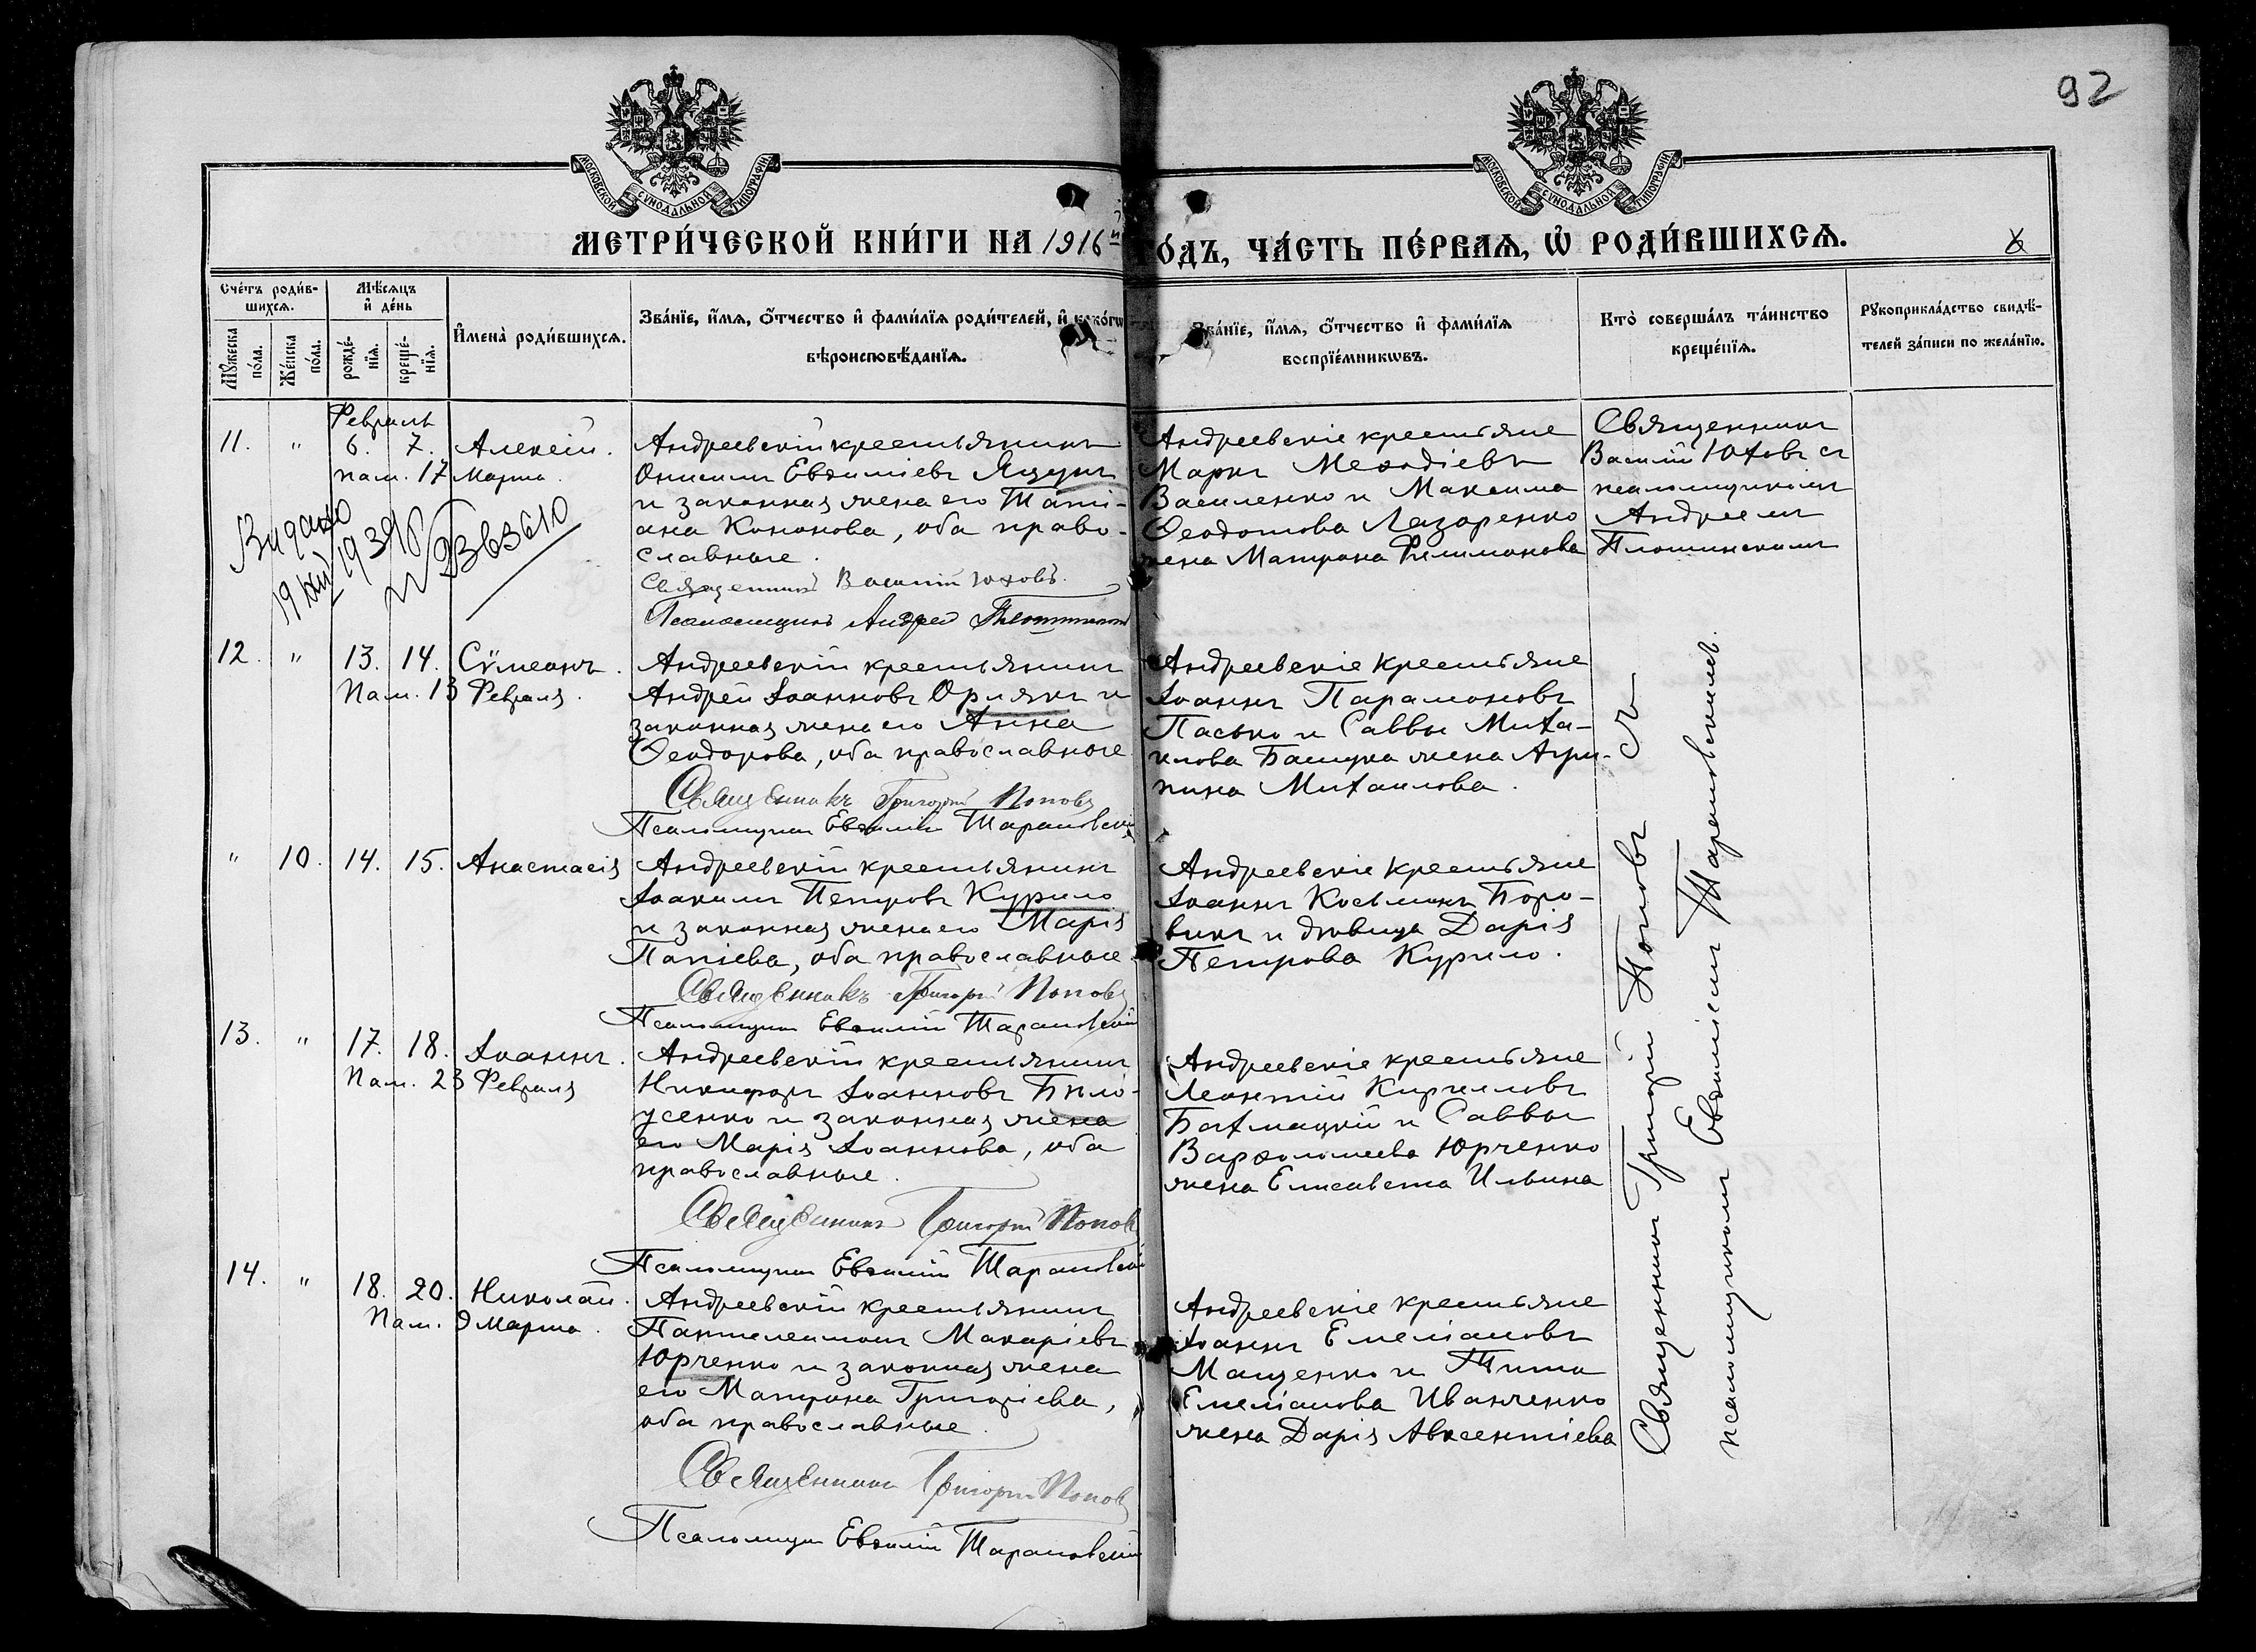 92
МОСКОВСКОЙ СѴНОДАЛЬНОЙ ТИПОГРАФІИ
МОСКОВСКОЙ СѴНОДАЛЬНОЙ ТИПОГРАФІИ
МЕТРИ́ЧЕСКОЙ КНИ́ГИ НА 1916й
О́ДЪ, ЧА́СТЬ ПЕ́РВАѦ, Ѡ҆ РОДИ́ВШИХСѦ.
6
Сче́тъ роди́в-
шихсѧ.
Мꙋжеска по́ла.
Же́нска по́ла.
Мѣ́сѧцъ и҆ де́нь
рожде́-нїѧ.
креще́-нїѧ.
И҆мена̀ роди́вшихсѧ.
Зва́нїе, и҆́мѧ, ѻ҆́тчество и҆ фами́лїѧ роди́телей, и҆ како́гѡ
вѣроисповѣ́данїѧ.
Зва́нїе, и҆́мѧ, ѻ҆́тчество и҆ фами́лїѧ
воспрїе́мникѡвъ.
Кто̀ соверша́лъ та́инство
креще́нїѧ.
Рꙋкоприкла́дство свидѣ́-
телей за́писи по жела́нїю.
Февраль
11. " 6. 7. Алексій.
пам. 17 Марта.
Видано
Андреевскій крестьянинъ
Онисимъ Евѳиміевъ Яцунъ
и законная жена его Таті-
ана Кононова, оба право-
славные.
Священникъ Василій Юховъ.
Псаломщикъ Андрей
Андреевскіе крестьяне
Маркъ Меѳодіевъ
Василенко и Максима
Ѳеодотова Лазаренко
жена Матрона Филимонова
Священникъ
Василій Юховъ съ
псаломщикомъ
Андреемъ
Плотинскимъ
12. " 13. 14. Сѵмеонъ.
Пам. 13 Февраля.
Андреевскій крестьянинъ
Андрей Іоанновъ Орлякъ и
законная жена его Анна
Ѳеодорова, оба православные
Священникъ Григорій Поповъ
Псаломщикъ Евѳимій Тарановскій
Андреевскіе крестьяне
Іоаннъ Парамоновъ
Пасько и Саввы Миха-
илова Башука жена Агри-
пина Михаилова.
" 10. 14. 15. Анастасія
Андреевскій крестьянинъ
Іоакимъ Петровъ Курило
и законная жена его Марія
Папіева, оба православные
Священникъ Григорій Поповъ
Псаломщикъ Евѳимій Тарановскій
Андреевскіе крестьяне
Іоаннъ Косьминъ Боро-
викъ и дѣвица Дарія
Петрова Курило.
13. " 17. 18. Іоаннъ.
Пам. 23 Февраля
Андреевскій крестьянинъ
Никифоръ Іоанновъ Било-
усенко и законная жена
его Марія Іоаннова, оба
православные.
Священникъ Григорій Поповъ
Псаломщикъ Евѳимій Тарановскій
Андреевскіе крестьяне
Леонтій Кирилловъ
Бахмацкій и Саввы
Варѳоломеева Юрченко
жена Елисавета Ильина
14. " 18. 20. Николай.
Пам. 9 Марта.
Андреевскій крестьянинъ
Пантелеимонъ Макаріевъ
Юрченко и законная жена
его Матрона Григоріева,
оба православные.
Священникъ Григорій Поповъ
Псаломщикъ Евѳимій Тарановскій
Андреевскіе крестьяне
Іоаннъ Емеліановъ
Мащенко и Тита
Емеліанова Иванченко
жена Дарія Авксентіева
Священникъ Григорій Поповъ съ
псаломщикомъ Евѳиміемъ Тарановскимъ.